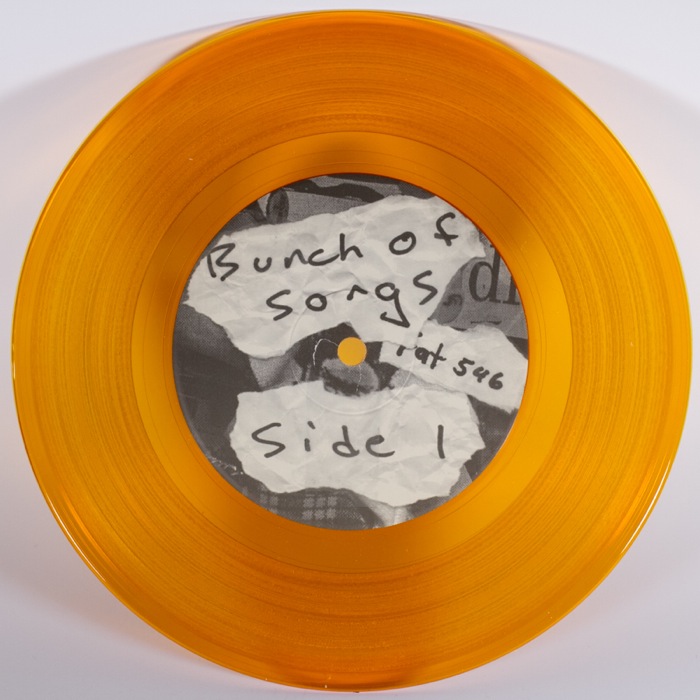 Bunch of
songs
rat 546
Side 1